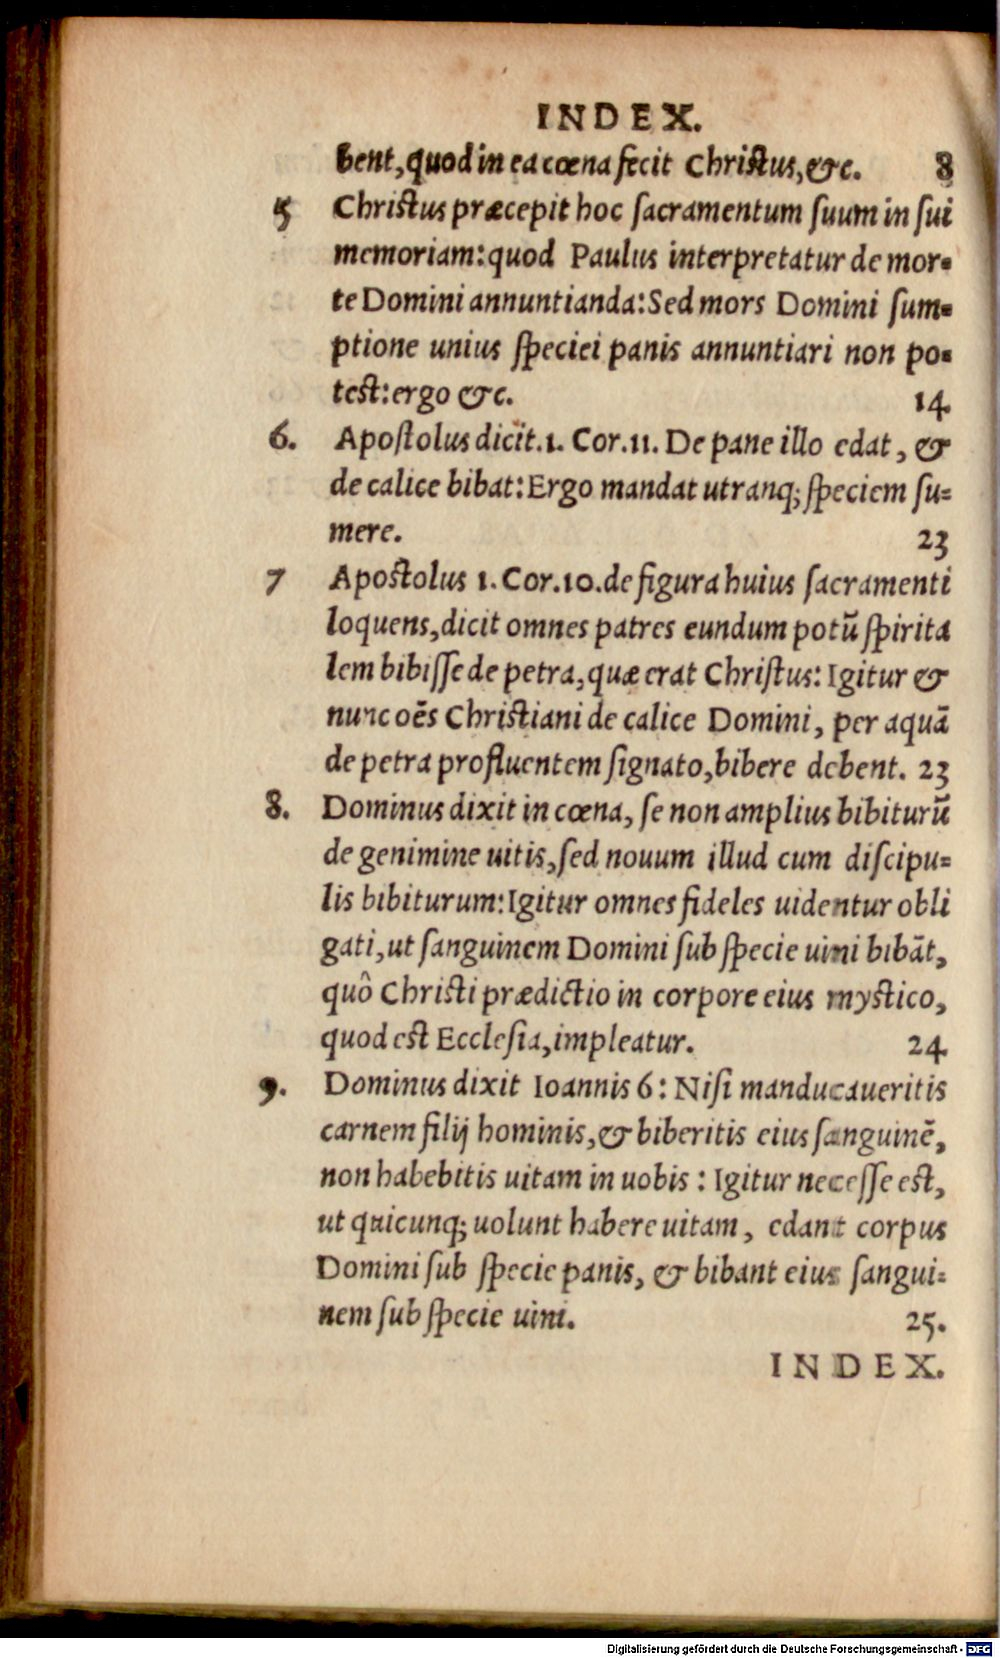 INDEX.
bent, quod in ea cœna fecit Christus, &c. 8
5 Christus præcepit hoc sacramentum suum in sui
memoriam: quod Paulus interpretatur de mor-
te Domini annuntianda: Sed mors Domini sum-
ptione unius speciei panis annuntiari non po-
test: ergo &c. 14
6. Apostolus dicit. 1. Cor. 11. De pane illo edat, &
de calice bibat: Ergo mandat utranq; speciem su-
mere. 23
7 Apostolus 1. Cor. 10. de figura huius sacramenti
loquens, dicit omnes patres eundum potū spirita
lem bibisse de petra, quæ erat Christus: Igitur &
nunc oēs Christiani de calice Domini, per aquā
de petra profluentem signato, bibere debent. 23
8. Dominus dixit in cœna, se non amplius bibiturū
de genimine uitis, sed nouum illud cum discipu-
lis bibiturum: Igitur omnes fideles uidentur obli
gati, ut sanguinem Domini sub specie uini bibāt,
quô Christi prædictio in corpore eius mystico,
quod est Ecclesia, impleatur. 24
9. Dominus dixit Ioannis 6: Nisi manducaueritis
carnem filij hominis, & biberitis eius sanguinē,
non habebitis uitam in uobis: Igitur necesse est,
ut quicunq; uolunt habere uitam, edant corpus
Domini sub specie panis, & bibant eius sangui-
nem sub specie uini. 25.
INDEX.
Digitalisierung gefördert durch die Deutsche Forschungsgemeinschaft - DFG